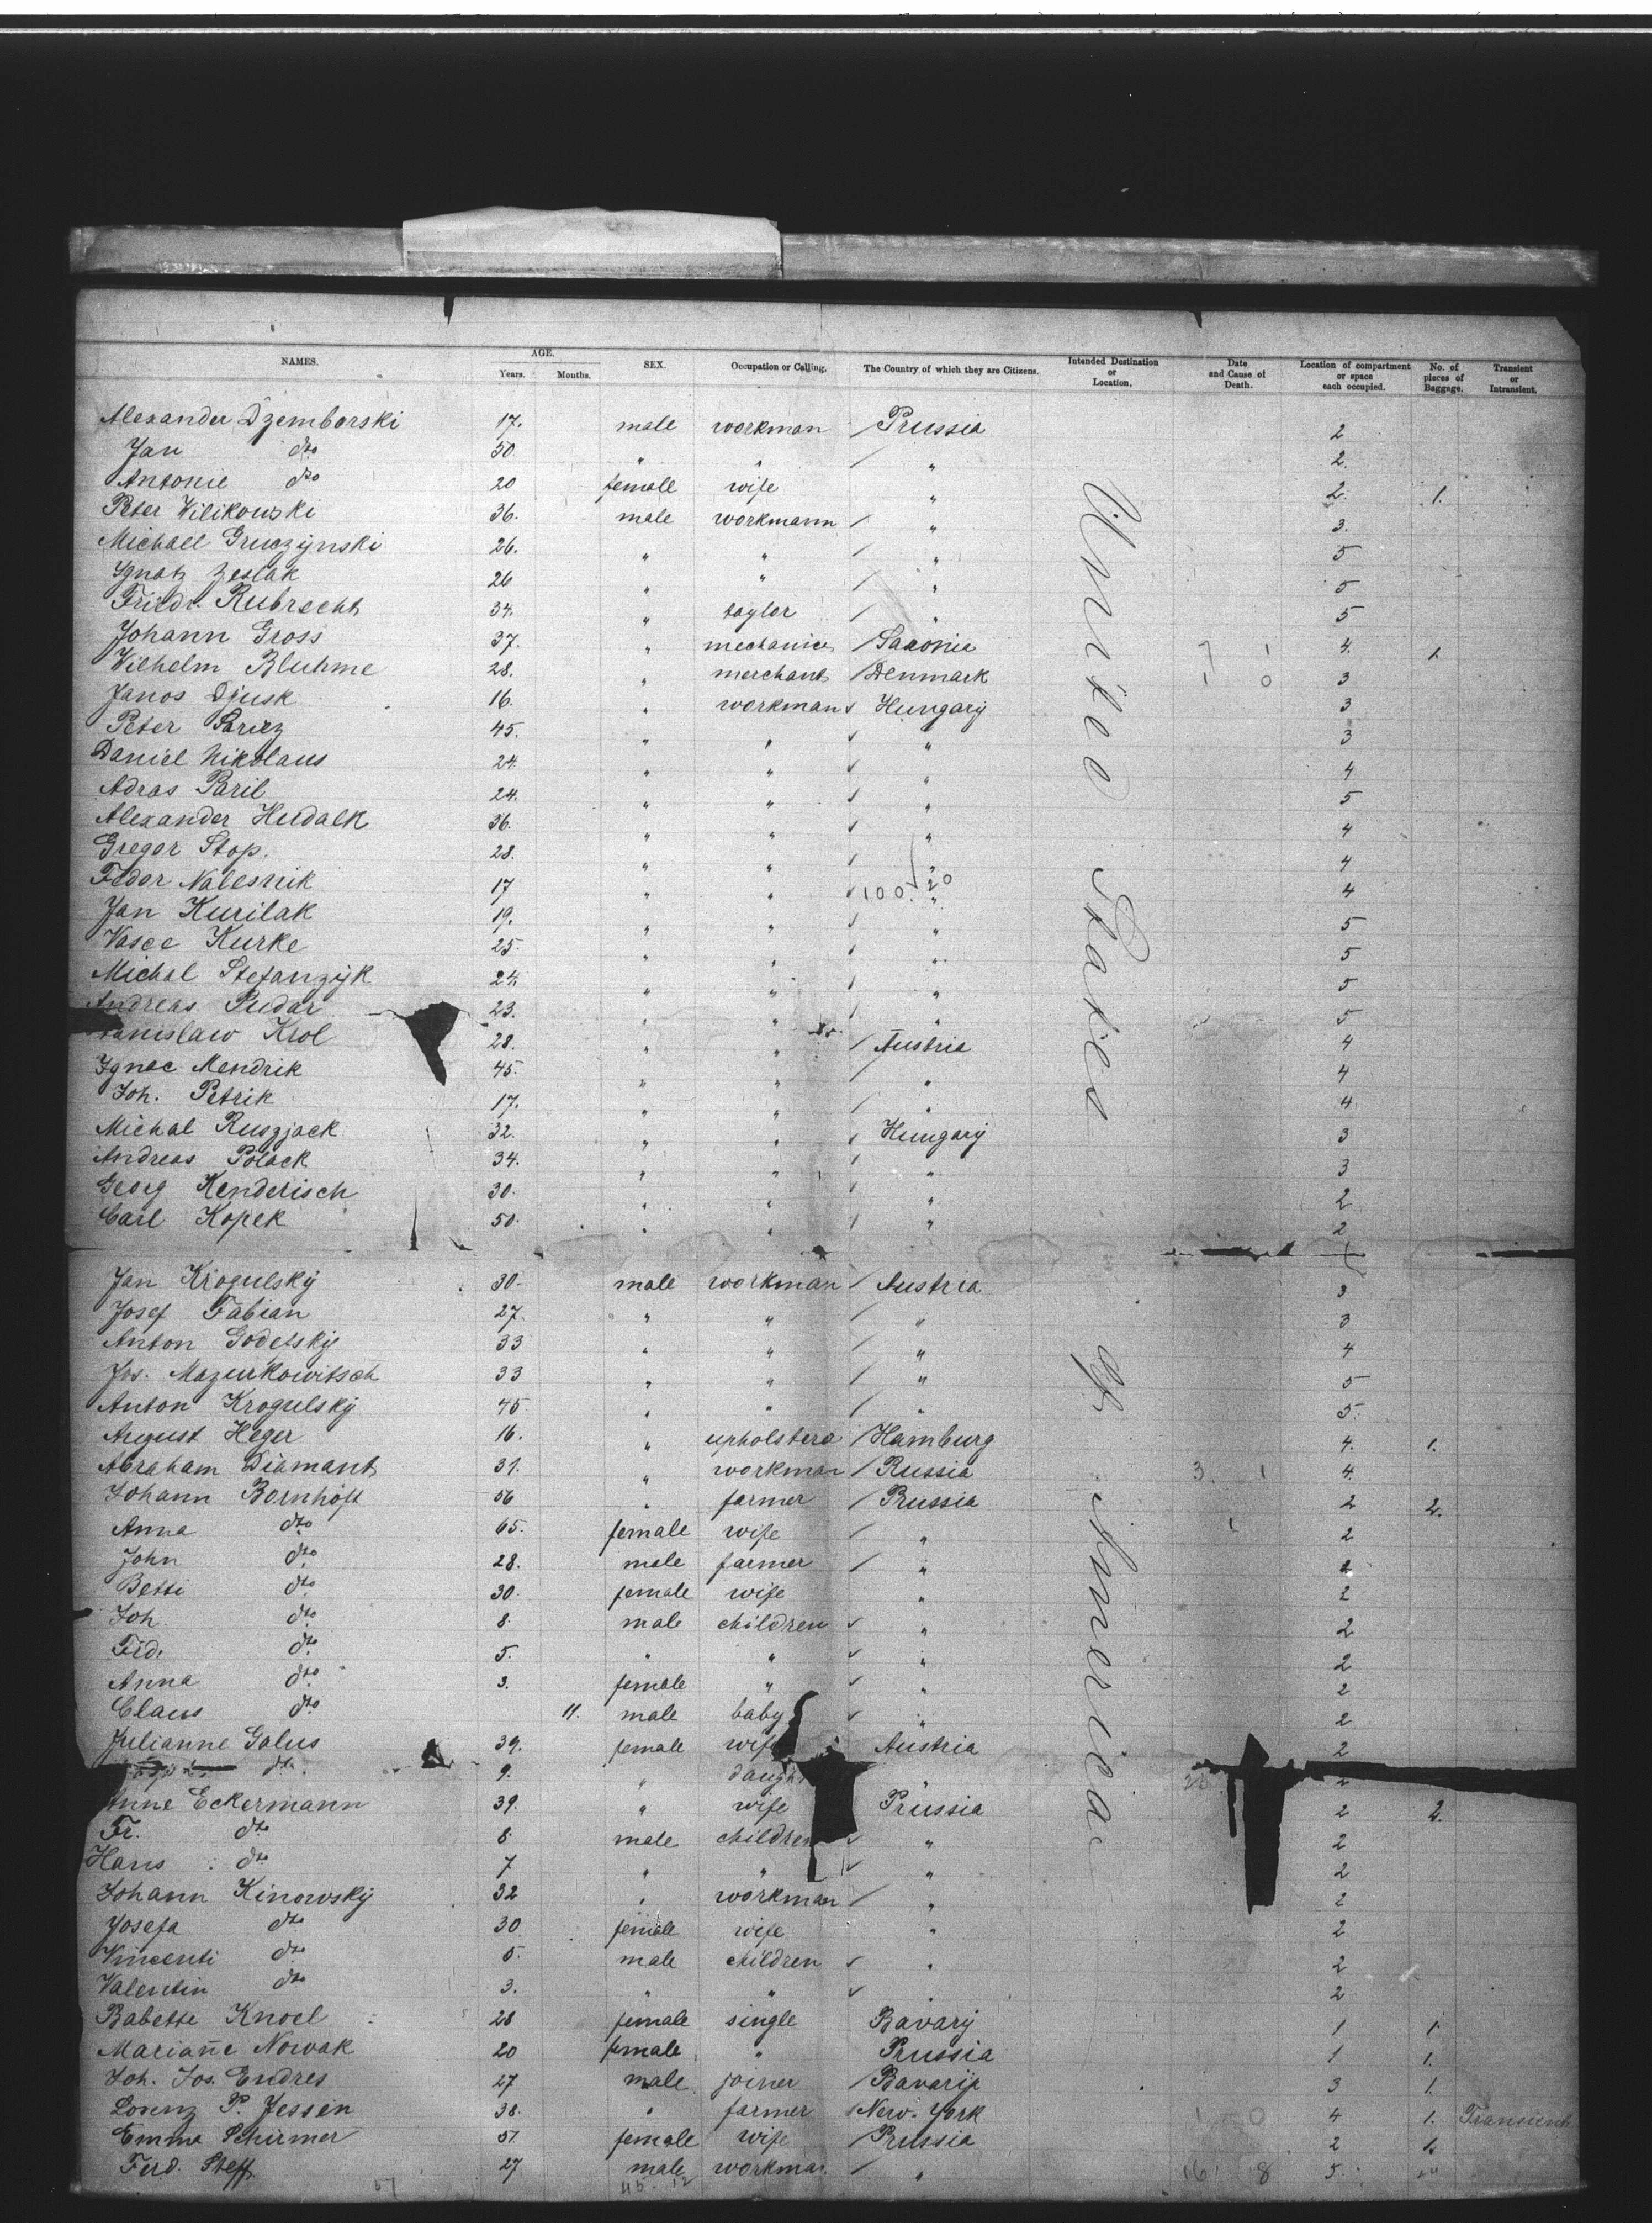 NAMES. AGE. Years. Months. SEX. Occupation or Calling. The Country of which they are Citizens. Intended Destination or Location. Date and Cause of Death. Location of compartment or space each occupied. No. of pieces of Baggage. Transient or Intransient.
United States of America
Alexander Dzemborski 17. male workman / Prussia 2
Jan dto 50. " " / " 2.
Antonie dto 20 female wife " 2. 1.
Peter Vilikowski 36. male workmann / " 3.
Michael Gruczynski 26. " " / " 5
Ignatz Zeslak 26 " " / " 5
Friedr. Rubrecht 34. " taylor / " 5
Johann Gross 37. " mechanics / Saxonia 7 1 4. 1.
Wilhelm Bluhme 28. " merchant / Denmark 1 0 3
Janos Diusk 16. " workman ✓ Hungary 3
Peter 45. " " ✓ " 3
Daniel Nikolaus 24. " " ✓ " 4
Adras Paril 24. " " ✓ " 5
Alexander Hudalk 36. " " ✓ " 4
Gregor Stop. 28. " " ✓ " 4
Fedor Nalesnik 17 " " ✓ 100. 20 " 4
Jan Kurilak 19. " " ✓ " 5
Vasce Kurke 25. " " ✓ " 5
Michal Stefanzyk 24. " " ✓ " 5
Andreas Pudar 23. " " / " 5
Stanislaw Krol 28. " " / Austria 4
Ignac Mendrik 45. " " / " 4
Joh. Petrik 17. " " / " 4
Michal Ruszjack 32. " " ✓ Hungary 3
Andreas Polack 34. " " ✓ " 3
Georg Kenderisch 30. " " ✓ " 2
Carl Kopek 50. " " / " 2
Jan Krogulsky 30. male workman / Austria 3
Josef Fabian 27. " " / " 3
Anton Godelsky 33 " " / " 4
Jos. Mazurkowitsch 33 " " / " 5
Anton Krogulsky 45 " " / " 5.
August Heger 16. " upholstera / Hamburg 4. 1.
Abraham Diamant 31. " workman / Russia 3. 1 4.
Johann Bornhöft 56 " farmer / Prussia 2 2.
Anna dto 65. female wife / " 1 2
John dto 28. male farmer / " 2
Betti dto 30. female wife " 2
Joh. dto 8. male children ✓ " 2
Frd. dto 5. " " ✓ " 2
Anna dto 3. female " ✓ " 2
Claus dto 11. male baby ✓ " 2
Julianne Galus 39. female wife Austria 2
dto. 9. " daugh " 2
Anne Eckermann 39. " wife Prussia 2 2.
Fr. dto 8. male children ✓ " 2
Hans dto 7 " " ✓ " 2
Johann Kinowsky 32 " workman / " 2
Josefa dto 30 female wife " 2
Vincenti dto 5. male children ✓ " 2
Valentin dto 3. " " ✓ " 2
Babette Knoel 28 female single Bavary 1 1.
Marianne Nowak 20 female " Prussia 1 1.
Joh. Jos. Endres 27 male joiner / Bavary 3 1.
Lorenz P. Jessen 38. " farmer / New. York 1 0 4 1. Transient
Emma Schirmer 51 female wife / Prussia 2 1.
Ferd. Steff 27 male workman / " 16. 8 5.
57 45. 12